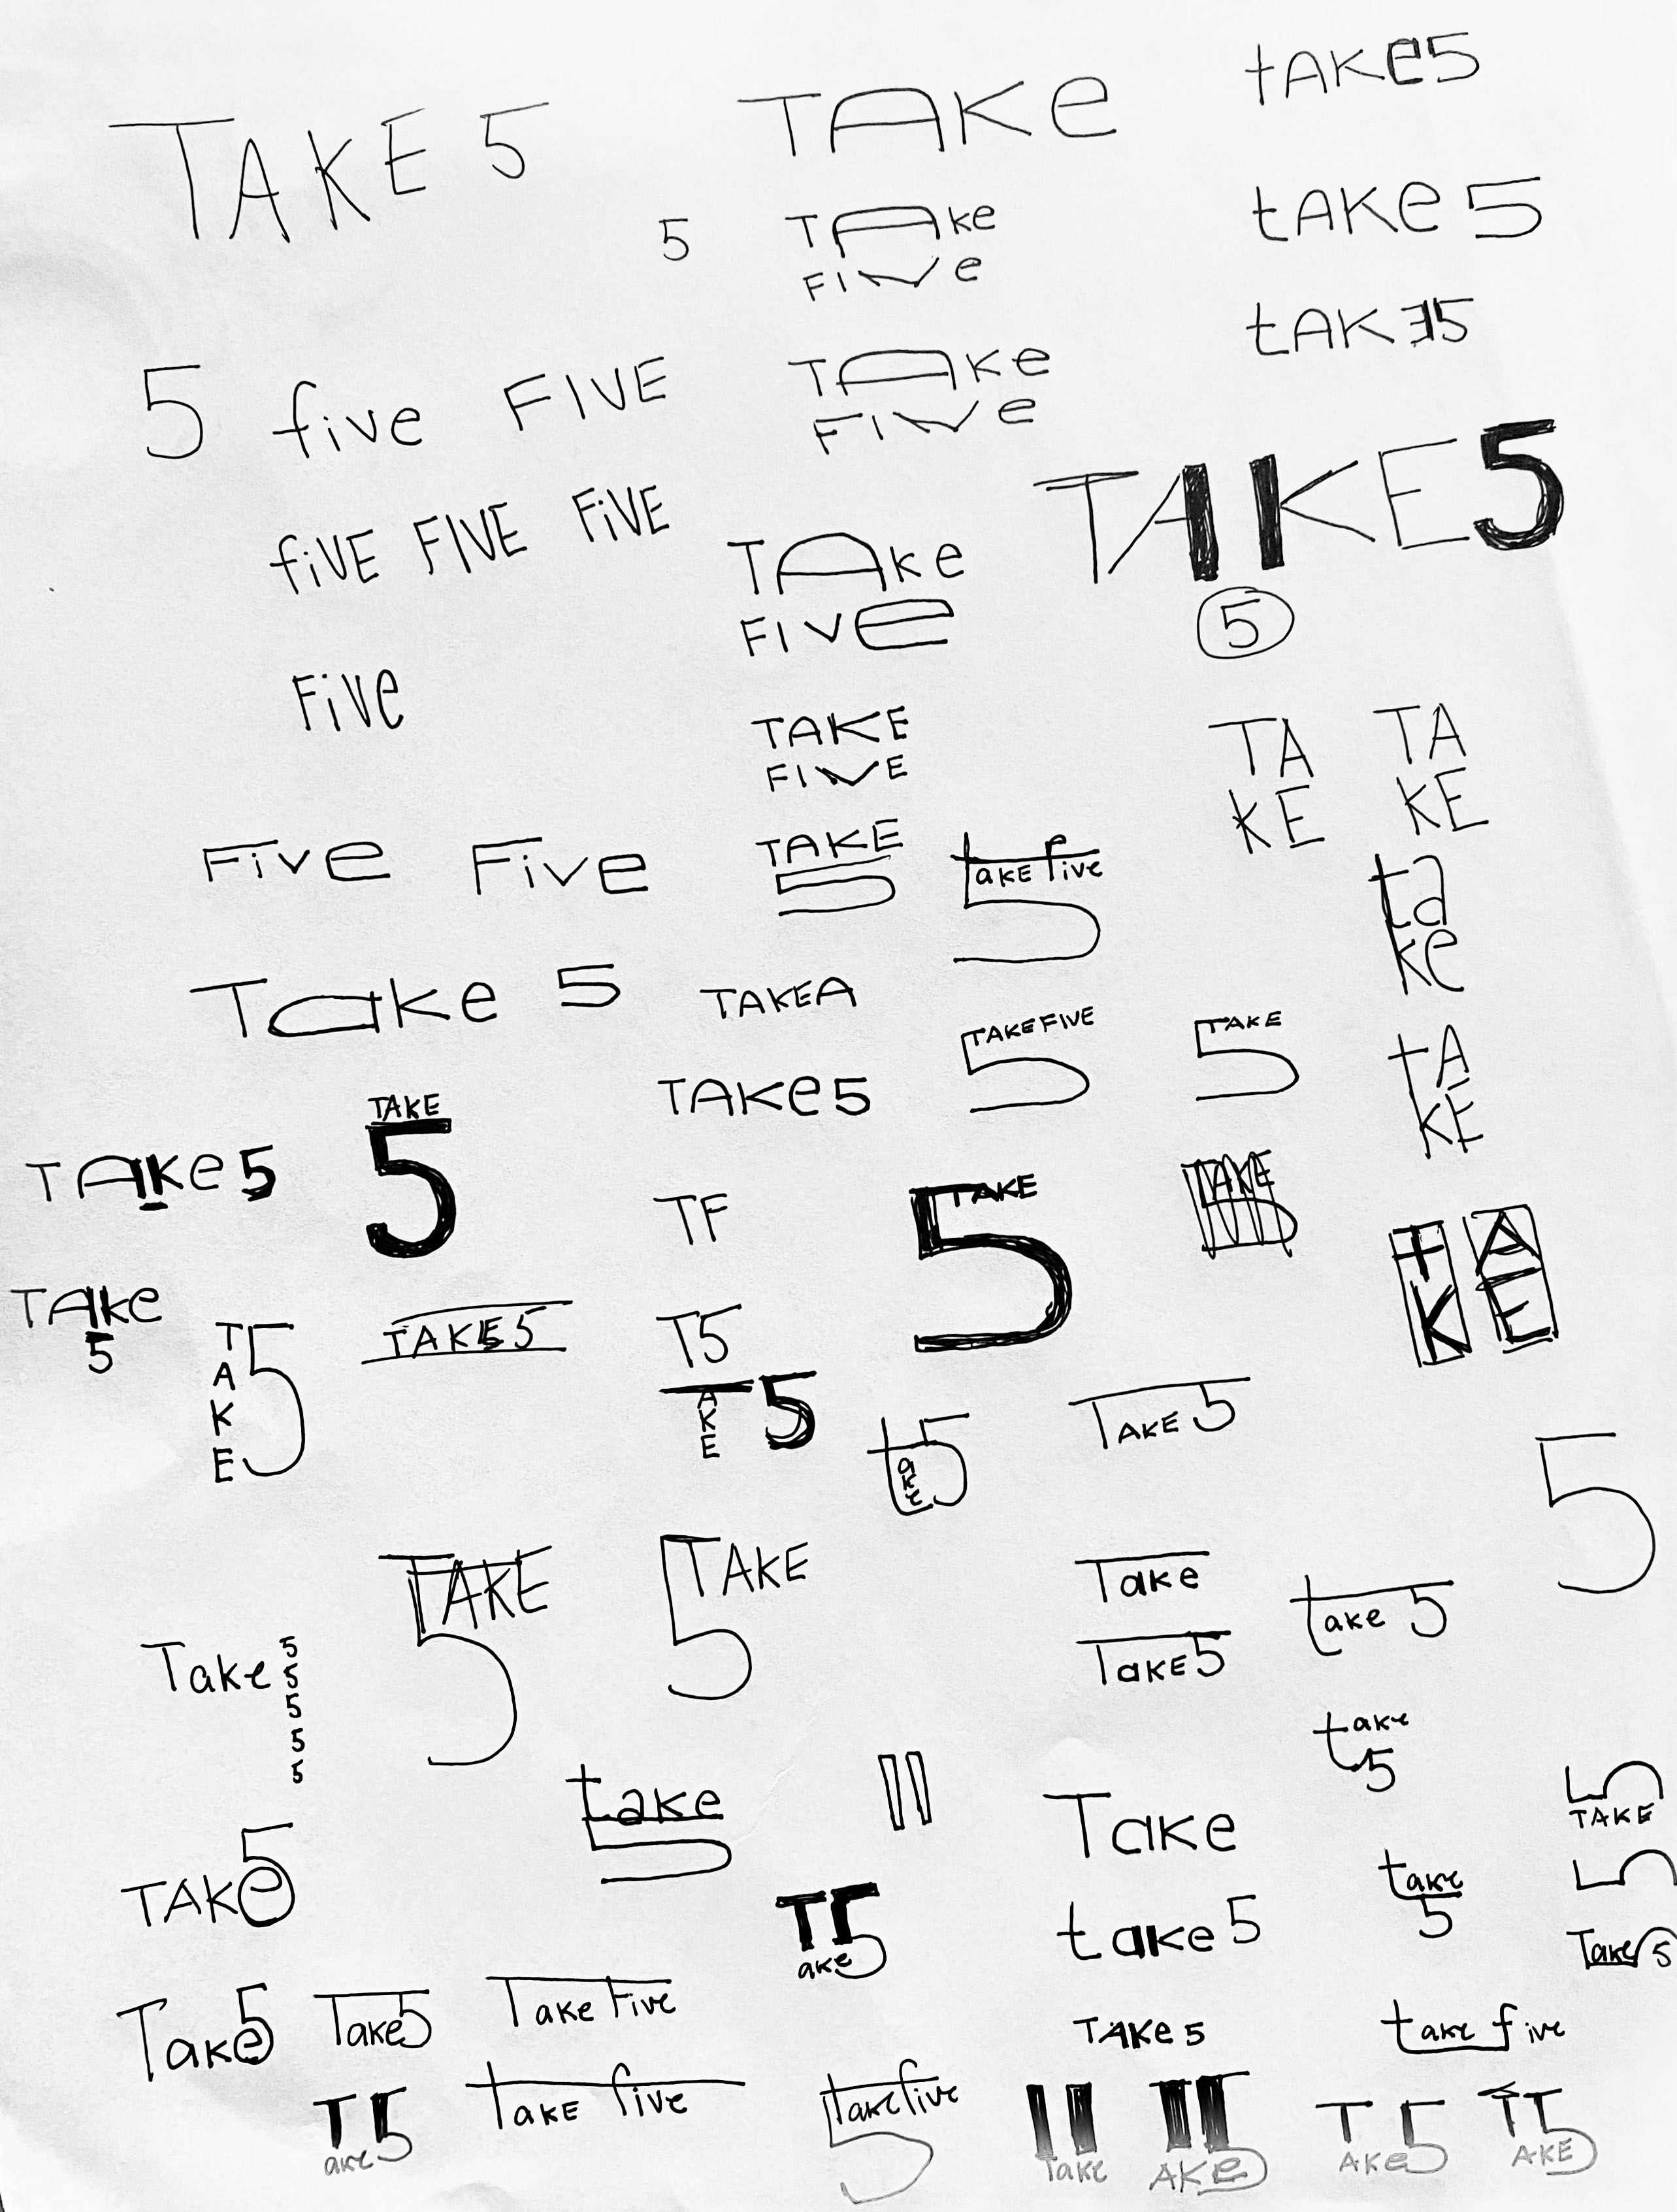 TAKE 5
TAKe
tAKe5
5
TAKe
FIVe
tAKe 5
5 five FIVE
TAKe
FIVe
tAK 5
fiVE FIVE FiVE
TAKE 5
5
TAKe
FIVe
FiVe
TAKE
FIVE
TA
KE
TA
KE
Five Five
TAKE
5
take five
5
ta
ke
Take 5
TAKEA
TAKEFIVE
5
TAKE
5
tA
KE
TAKe5
TAKe5
TAKE
5
TF
TAKE
5
TAKE
5
tA
KE
TAKe
5
T
A
K
E
5
TAKE5
T5
T
A
K
E
5
take
5
TAKE 5
5
TAKE
5
TAKE
5
Take
take 5
TAKE5
Take
5
5
5
5
5
take
5
take
5
Take
5
TAKE
TAKe
5
take 5
take
5
5
T5
ake
Take 5
Take5
Take5
Take5
Take Five
TAKe 5
take five
T5
ake
Take five
take five
5
Take
AKe
5
T5
AKe
T5
AKE